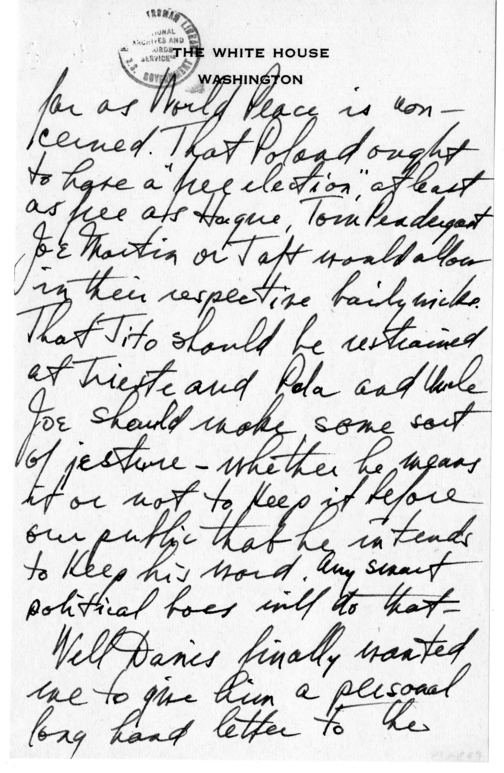 TRUMAN LIBRARY
NATIONAL
ARCHIVES AND
RECORDS
SERVICE
U.S. GOVERNMENT
THE WHITE HOUSE
WASHINGTON
far as World Peace is con-
cerned. That Poland ought
to have a "free election," at least
as free as Hague, Tom Pendergast
Joe Martin or Taft would allow
in their respective bailywicks.
That Tito should be restrained
at Trieste and Pola and Uncle
Joe should make some sort
of jesture - whether he means
it or not to keep it before
our public that he intends
to keep his word. Any smart
political boss will do that-
Well Davies finally wanted
me to give him a personal
long hand letter to the